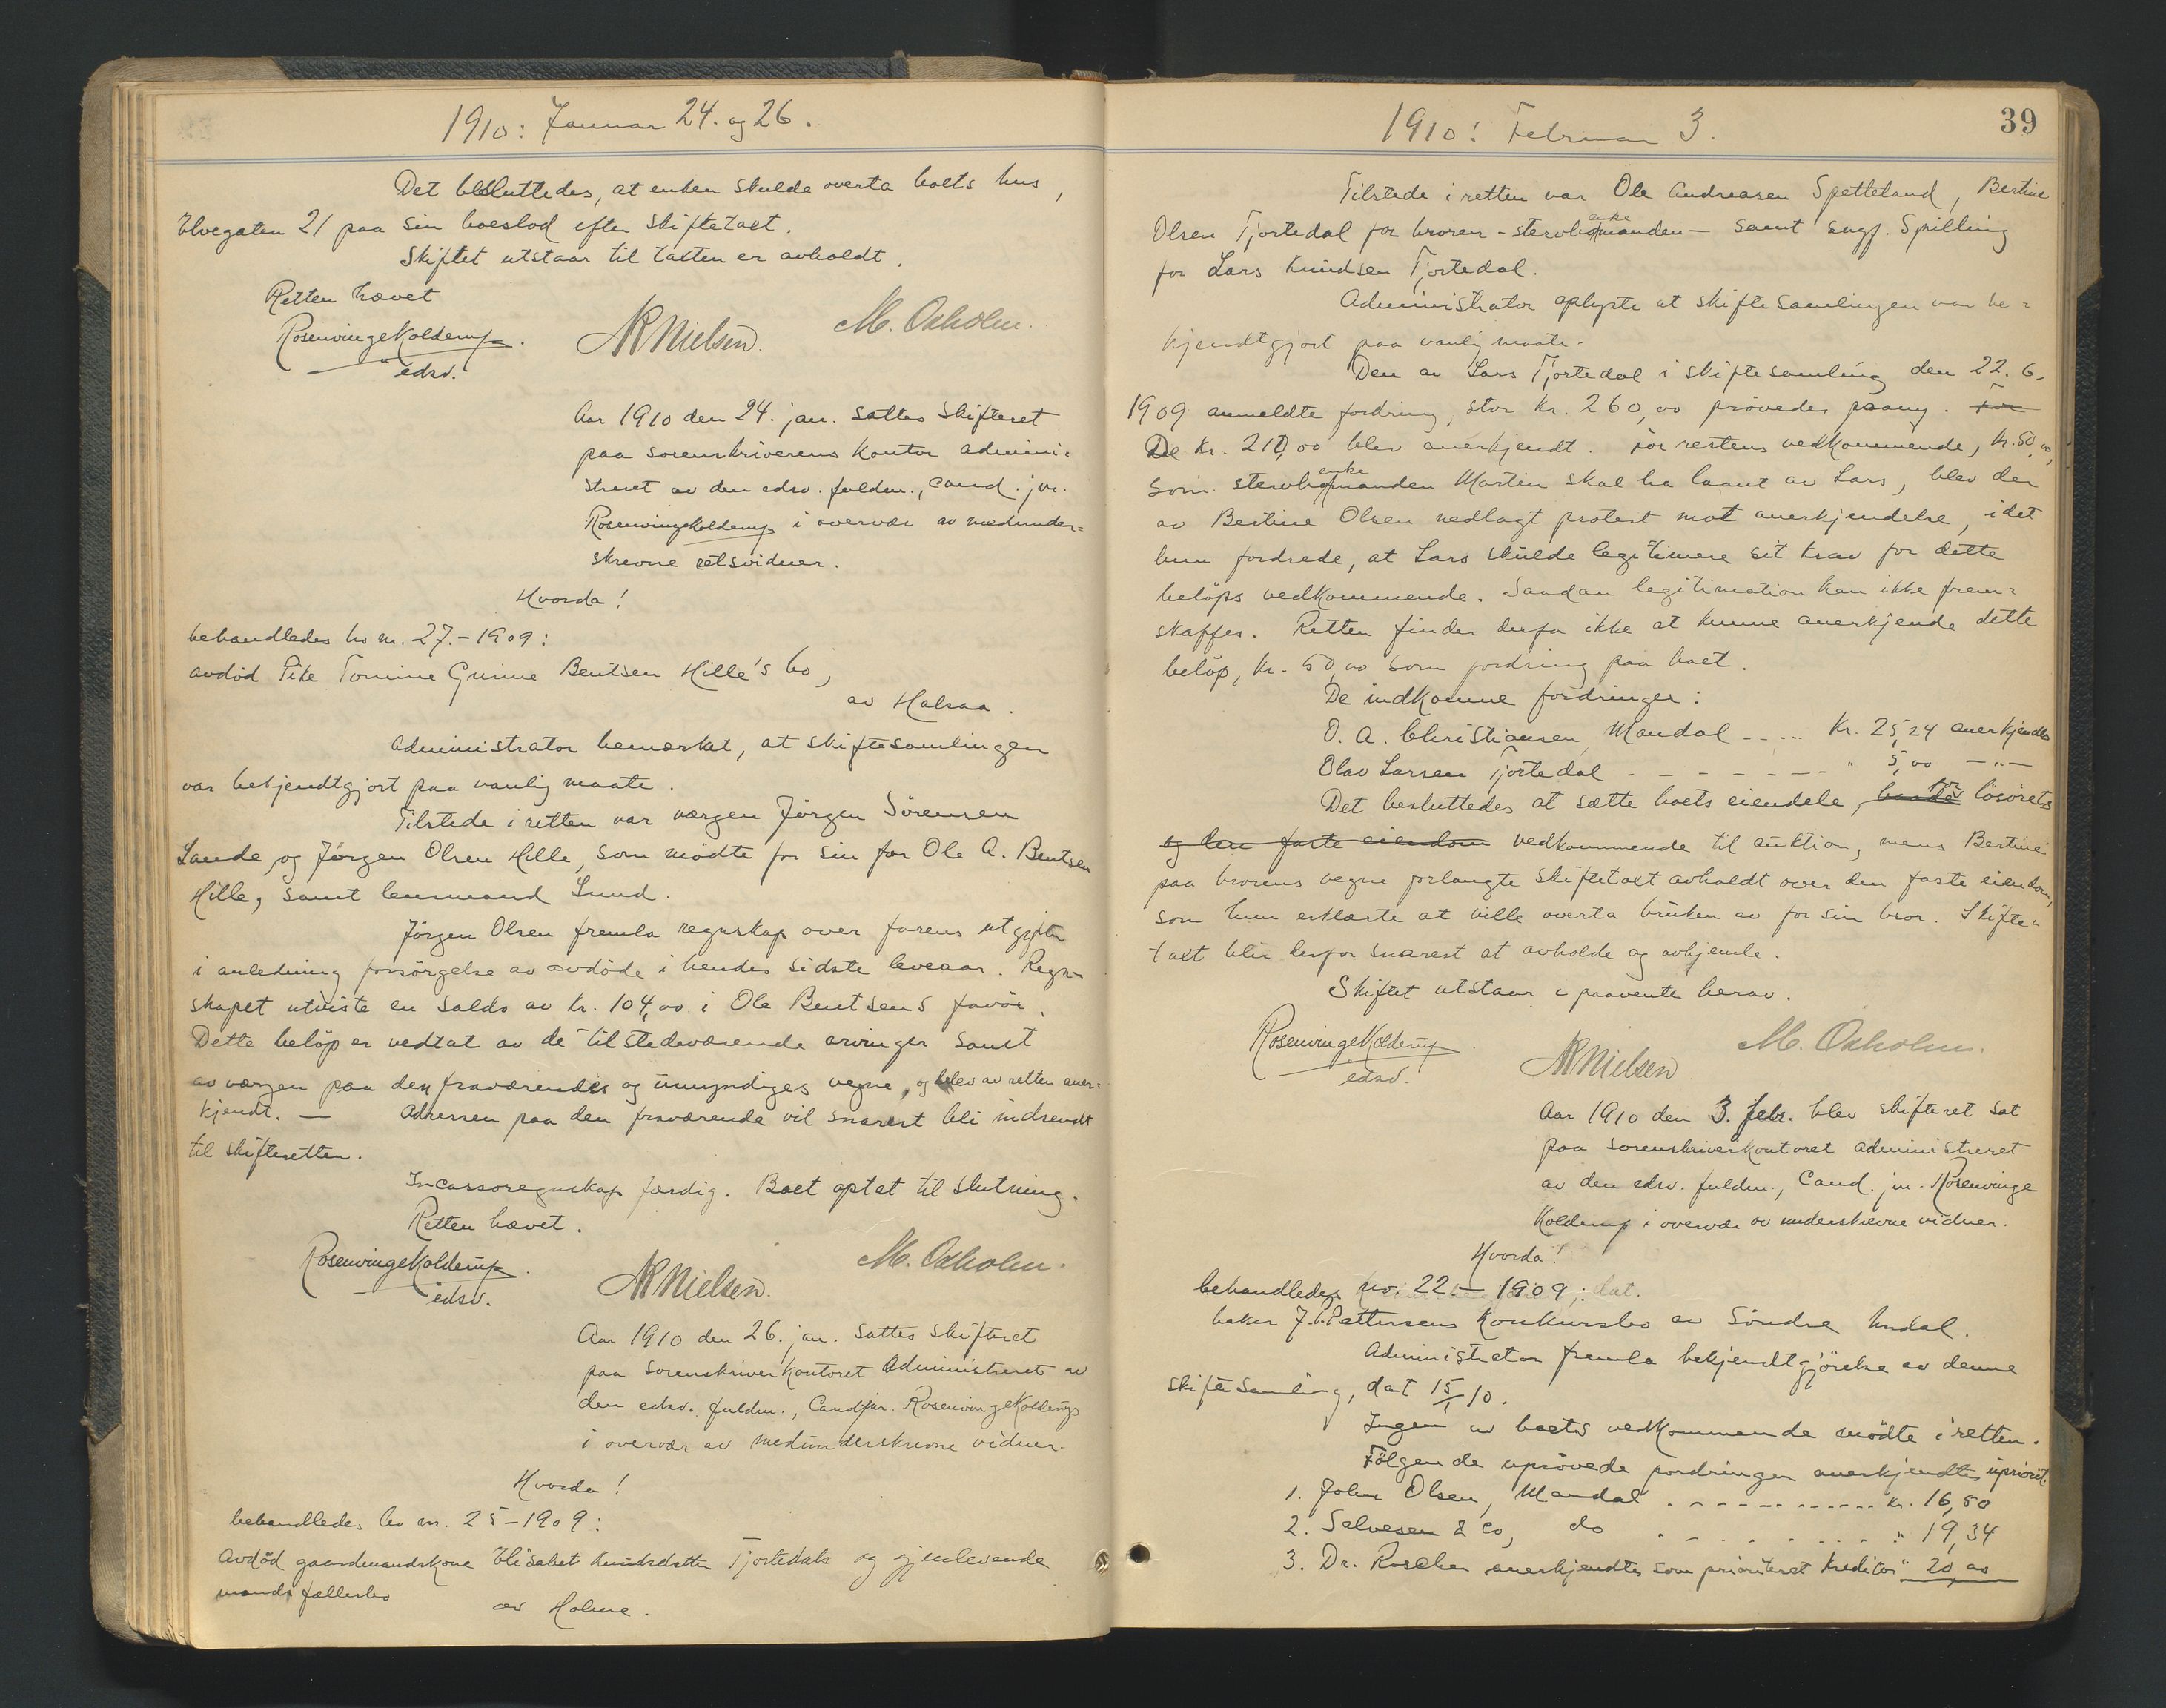 1910: Januar 24. og 26.
Det besluttedes, at enken skulde overta boets hus,
Elvegaten 21 paa sin boeslod efter skiftetaxt.
Skiftet utstaar til taxten er avholdt.
Retten hævet
Rosenvinge Kolderup.
edsv.
NRNielsen.
M. Oxholm.
Aar 1910 den 24. jan. sattes skifteret
paa sorenskriverens kontor admini-
streret av den edsv. fuldm., cand. jur.
Rosenvinge Kolderup i overvær av medunder-
skrevne retsvidner.
Hvorda!
behandledes bo nr. 27.-1909:
avdöd Pike Tomine Gurine Bentsen Hille's bo,
av Halsaa.
Administrator bemærket, at skiftesamlingen
var bekjendtgjort paa vanlig maate.
Tilstede i retten var værgen Jörgen Sörensen
Lande, og Jörgen Olsen Hille, som mödte for sin far Ole A. Bentsen
Hille, samt lensmand Lund.
Jörgen Olsen fremla regnskap over farens utgifter
i anledning forsörgelse av avdöde i hendes sidste leveaar. Regn-
skapet utviste en saldo av kr. 104,00 i Ole Bentsens favör.
Dette belöp er vedtat av de tilstedeværende arvinger samt
av værgen paa den fraværendes og umyndiges vegne, og blev av retten aner-
kjendt. — Adressen paa den fraværende vil snarest bli indsendt
til skifteretten.
Incassoregnskap færdig. Boet optat til slutning.
Retten hævet.
Rosenvinge Kolderup.
edsv.
NRNielsen.
M. Oxholm.
Aar 1910 den 26. jan. sattes skifteret
paa sorenskriverkontoret administreret av
den edsv. fuldm., Cand jur. Rosenvinge Kolderup
i overvær av medunderskrevne vidner.
Hvorda!
behandledes bo nr. 25-1909:
Avdöd gaardmandskone Elisabet Knudsdatter Tjortedals og gjenlevende
mands fællesbo
av Holme.
1910: Februar 3.
39
Tilstede i retten var Ole Andreasen Spetteland, Bertine
Olsen Tjortedal for broren - stervboenkemanden - samt sagf. Spilling
for Lars Knudsen Tjortedal.
Administrator oplyste at skiftesamlingen var be-
kjendtgjort paa vanlig maate.
Den av Lars Tjortedal i skiftesamling den 22. 6.
1909 anmeldte fordring, stor kr. 260,00 prövedes paany. For
De kr. 210,00 blev anerkjendt. For restens vedkommende, kr. 50,00,
som stervboenkemanden Martin skal ha laant av Lars, blev der
av Bertine Olsen nedlagt protest mot anerkjendelse, idet
hun fordrede, at Lars skulde legitimere sit krav for dette
belöps vedkommende. Saadan legitimation kan ikke frem-
skaffes. Retten finder derfor ikke at kunne anerkjende dette
belöp, kr. 50,00 som fordring paa boet.
De indkomne fordringer:
O. A. Christiansen, Mandal ----- kr. 25,24 anerkjendtes
Olav Larsen Tjortedal - - - - - - - " 5,00 —"—
Det besluttedes at sætte boets eiendele, baade for lösörets
og den faste eiendom vedkommende til auktion, mens Bertine
paa brorens vegne forlangte skiftetaxt avholdt over den faste eiendom,
som hun erklærte at ville overta bruken av for sin bror. Skifte-
taxt blir derfor snarest at avholde og avhjemle.
Skiftet utstaar i paavente herav.
Rosenvinge Kolderup.
edsv.
NRNielsen
M. Oxholm.
Aar 1910 den 3. febr. blev skifteret sat
paa sorenskriverkontoret administreret
av den edsv. fuldm., Cand. jur. Rosenvinge
Kolderup i overvær av underskrevne vidner.
Hvorda!
behandledes nr. 22 - 1909:
baker J. Pettersens Konkursbo av Söndre Undal.
Administrator fremla bekjendtgjörelse av denne
skiftesamling, dat 15/1 10.
Ingen av boets vedkommende mödte i retten.
Fölgende uprövede fordringer anerkjendtes upriorit.
1. John Olsen, Mandal . - - - - - - - - kr. 16,50
2. Salvesen & Co, do . - . . . . . . . " 19,34
3. Dr. Roscher anerkjendtes som prioriteret kreditor " 20,00